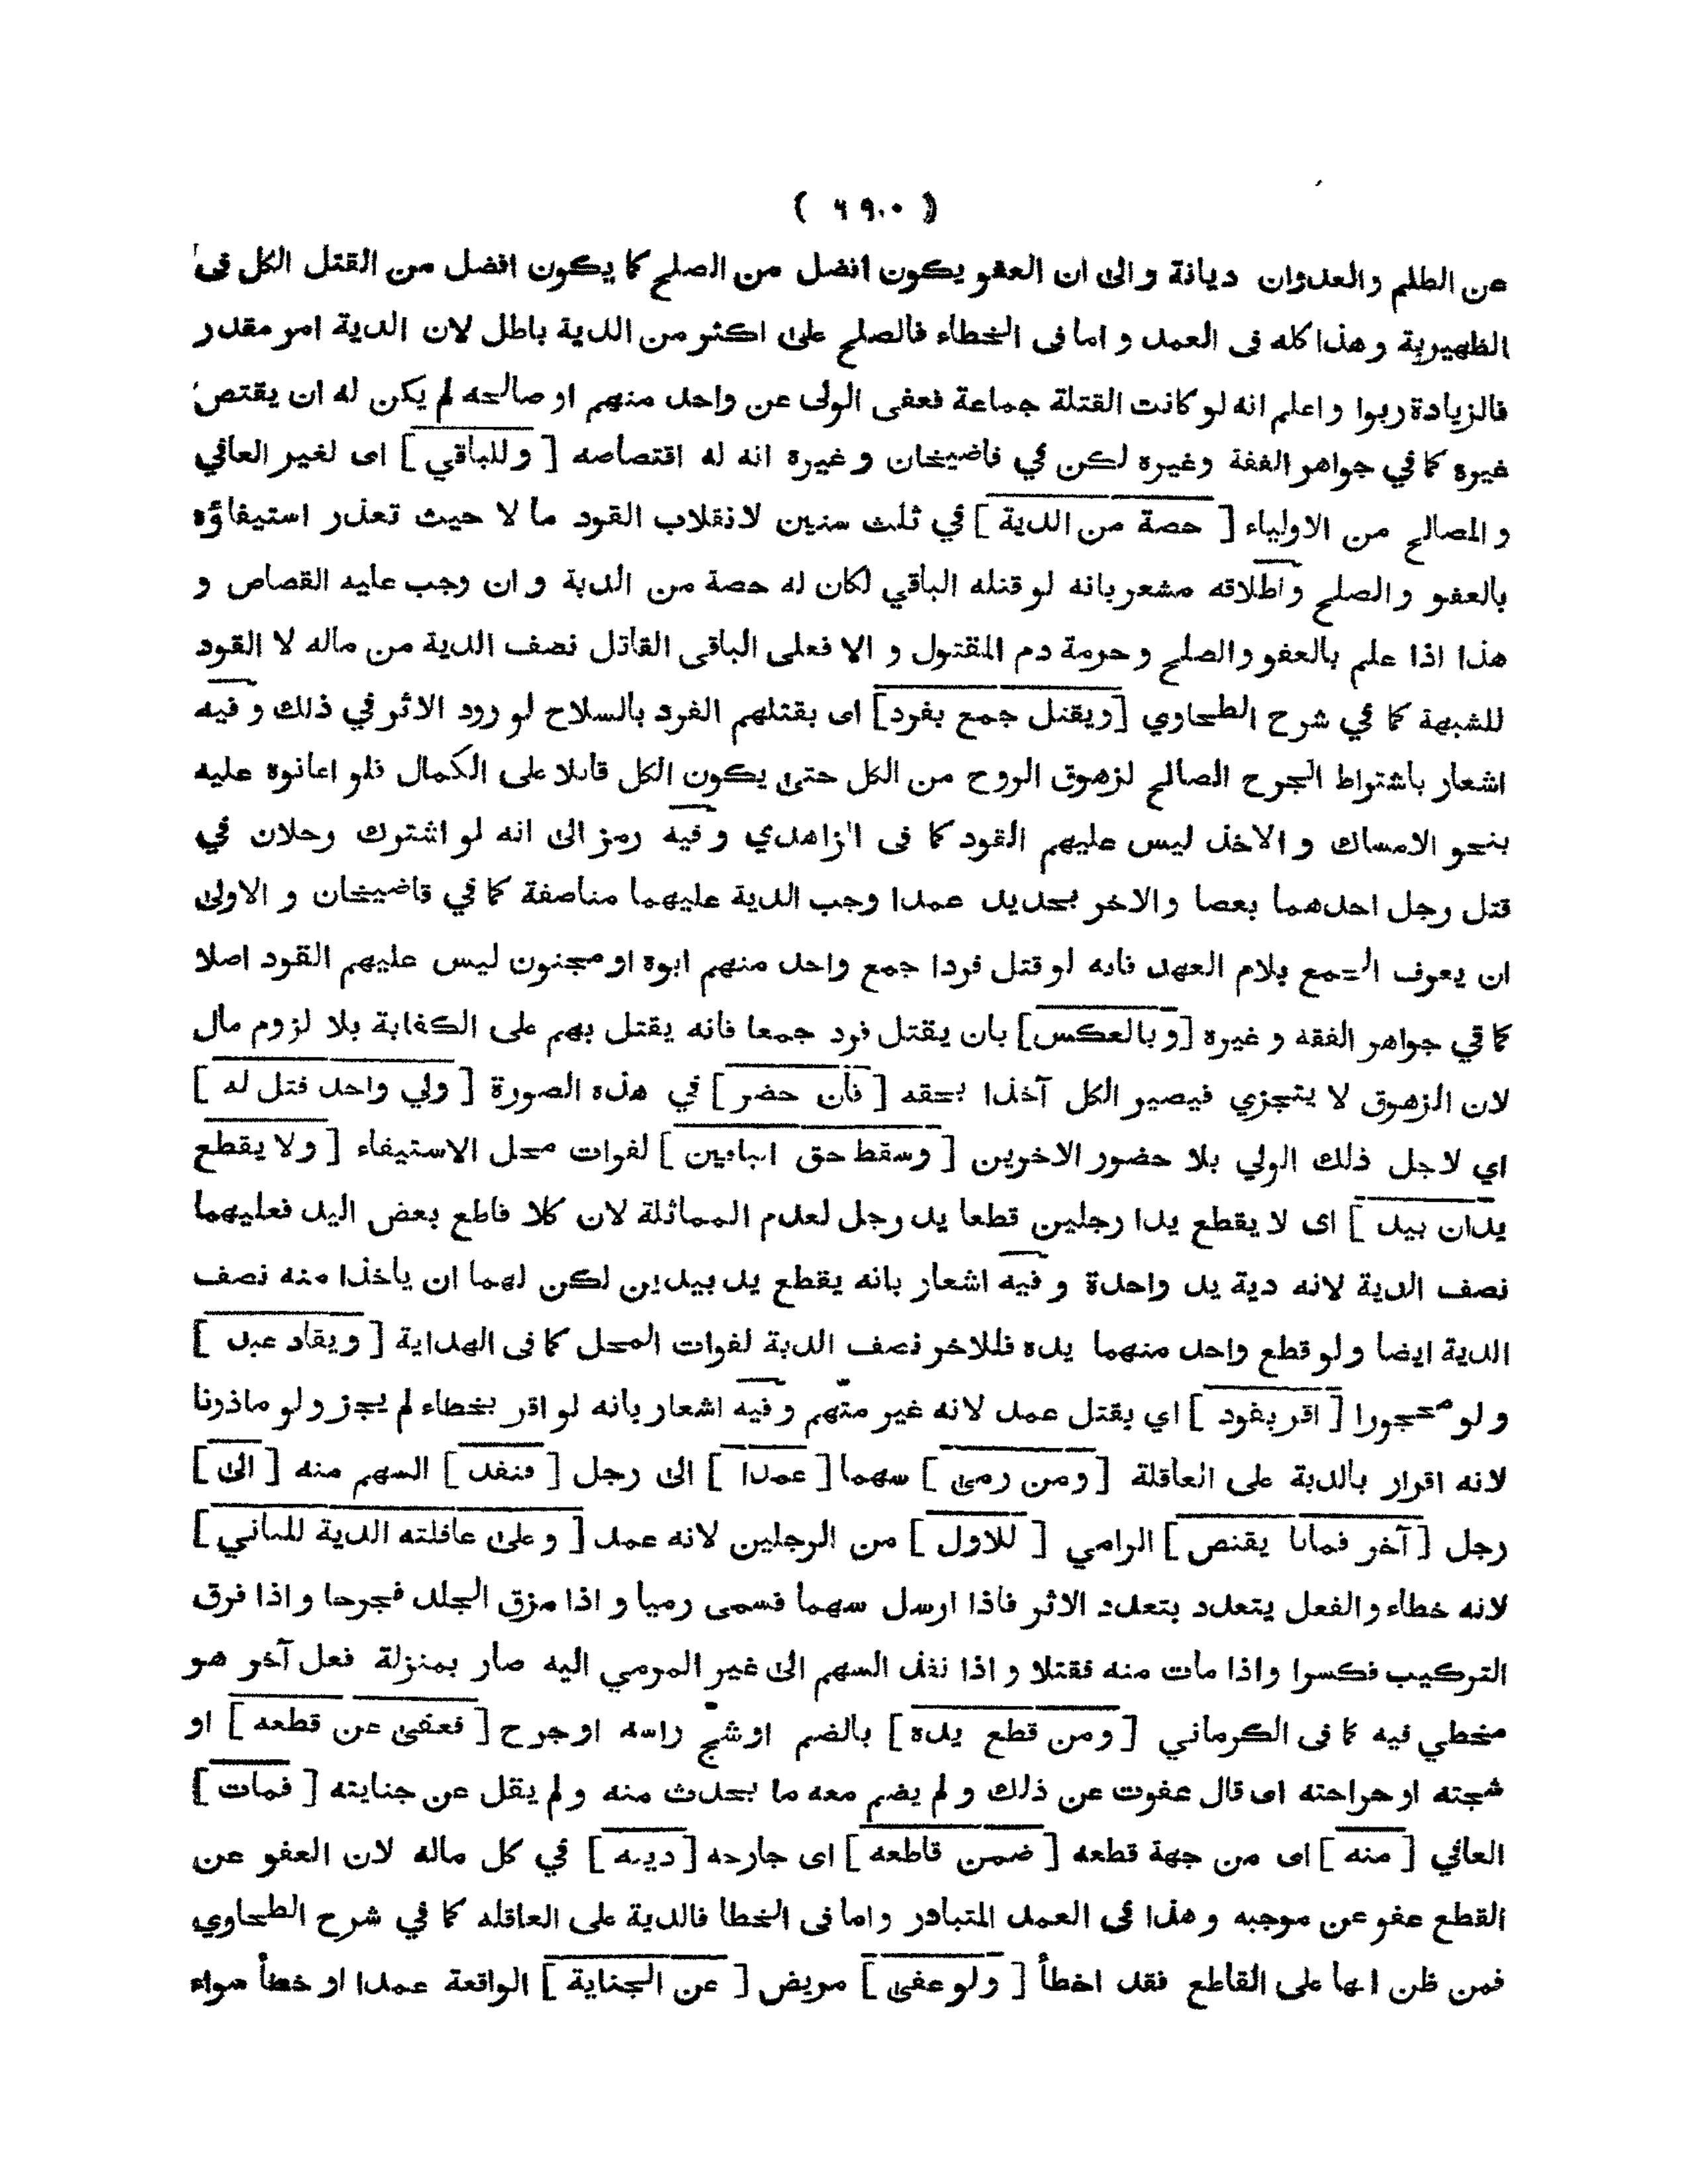 ( ٦٩٠ )
عن الظلم والعدوان ديانة والى ان العفو يكون افضل من الصلح كما يكون افضل من القتل الكل فى
الظهيرية وهذا كله فى العمد و اما فى الخطاء فالصلح على اكثر من الدية باطل لان الدية امر مقدر
فالزيادة ربوا و اعلم انه لو كانت القتلة جماعة فعفى الولى عن واحد منهم او صالحه لم يكن له ان يقتص
غيره كما في جواهر الفقه وغيره لكن في قاضيخان و غيره انه له اقتصاصه [ وللباقي ] اى لغير العافي
و المصالح من الاولياء [ حصة من الدية ] في ثلث سنين لانقلاب القود ما لا حيث تعذر استيفاؤه
بالعفو و الصلح واطلاقه مشعر بانه لو قتله الباقي لكان له حصة من الدية و ان وجب عليه القصاص و
هذا اذا علم بالعفو والصلح و حرمة دم المقتول و الا فعلى الباقى القاتل نصف الدية من ماله لا القود
للشبهة كما في شرح الطحاوي [ويقتل جمع بفرد] اى بقتلهم الفرد بالسلاح لو رود الاثر في ذلك و فيه
اشعار باشتراط الجرح الصالح لزهوق الروح من الكل حتى يكون الكل قاتلا على الكمال فلو اعانوه عليه
بنحو الامساك و الاخذ ليس عليهم القود كما فى الزاهدي و فيه رمز الى انه لو اشترك رجلان في
قتل رجل احدهما بعصا والاخر بحديد عمدا وجب الدية عليهما مناصفة كما في قاضيخان و الاولى
ان يعرف الجمع بلام العهد فانه لو قتل فردا جمع واحد منهم ابوه او مجنون ليس عليهم القود اصلا
كما في جواهر الفقه و غيره [و بالعكس] بان يقتل فرد جمعا فانه يقتل بهم على الكفاية بلا لزوم مال
لان الزهوق لا يتجزي فيصير الكل آخذا بحقه [ فأن حضر ] في هذه الصورة [ ولي واحد قتل له ]
اي لاجل ذلك الولي بلا حضور الاخرين [ وسقط حق الباقين ] لفوات محل الاستيفاء [ ولا يقطع
يدان بيد ] اى لا يقطع يدا رجلين قطعا يد رجل لعدم المماثلة لان كلا قاطع بعض اليد فعليهما
نصف الدية لانه دية يد واحدة و فيه اشعار بانه يقطع يد بيدين لكن لهما ان ياخذا منه نصف
الدية ايضا و لو قطع واحد منهما يده فللاخر نصف الدية لفوات المحل كما فى الهداية [ ويقاد عبد ]
و لو محجورا [ اقر بقود ] اي بقتل عمد لانه غير متهم و فيه اشعار بانه لو اقر بخطاء لم يجز و لو ماذونا
لانه اقرار بالدية على العاقلة [ ومن رمى ] سهما [ عمدا ] الى رجل [ فنفذ ] السهم منه [ الى ]
رجل [ آخر فماتا يقتص ] الرامي [ للاول ] من الرجلين لانه عمد [ و على عاقلته الدية للثاني ]
لانه خطاء و الفعل يتعدد بتعدد الاثر فاذا ارسل سهما فسمى رميا و اذا مزق الجلد فجرحا و اذا فرق
التركيب فكسرا واذا مات منه فقتلا و اذا نفذ السهم الى غير المرمي اليه صار بمنزلة فعل آخر هو
مخطي فيه كما فى الكرماني [ ومن قطع يده ] بالضم او شجّ راسه او جرح [ فعفى عن قطعه ] او
شجته او جراحته اى قال عفوت عن ذلك و لم يضم معه ما يحدث منه و لم يقل عن جنايته [ فمات ]
العافي [ منه ] اى من جهة قطعه [ ضمن قاطعه ] اى جارحه [ ديته ] في كل ماله لان العفو عن
القطع عفو عن موجبه و هذا فى العمد المتبادر و اما فى الخطا فالدية على العاقله كما في شرح الطحاوي
فمن ظن انها على القاطع فقد اخطأ [ ولو عفى ] مريض [ عن الجناية ] الواقعة عمدا او خطأ سواء